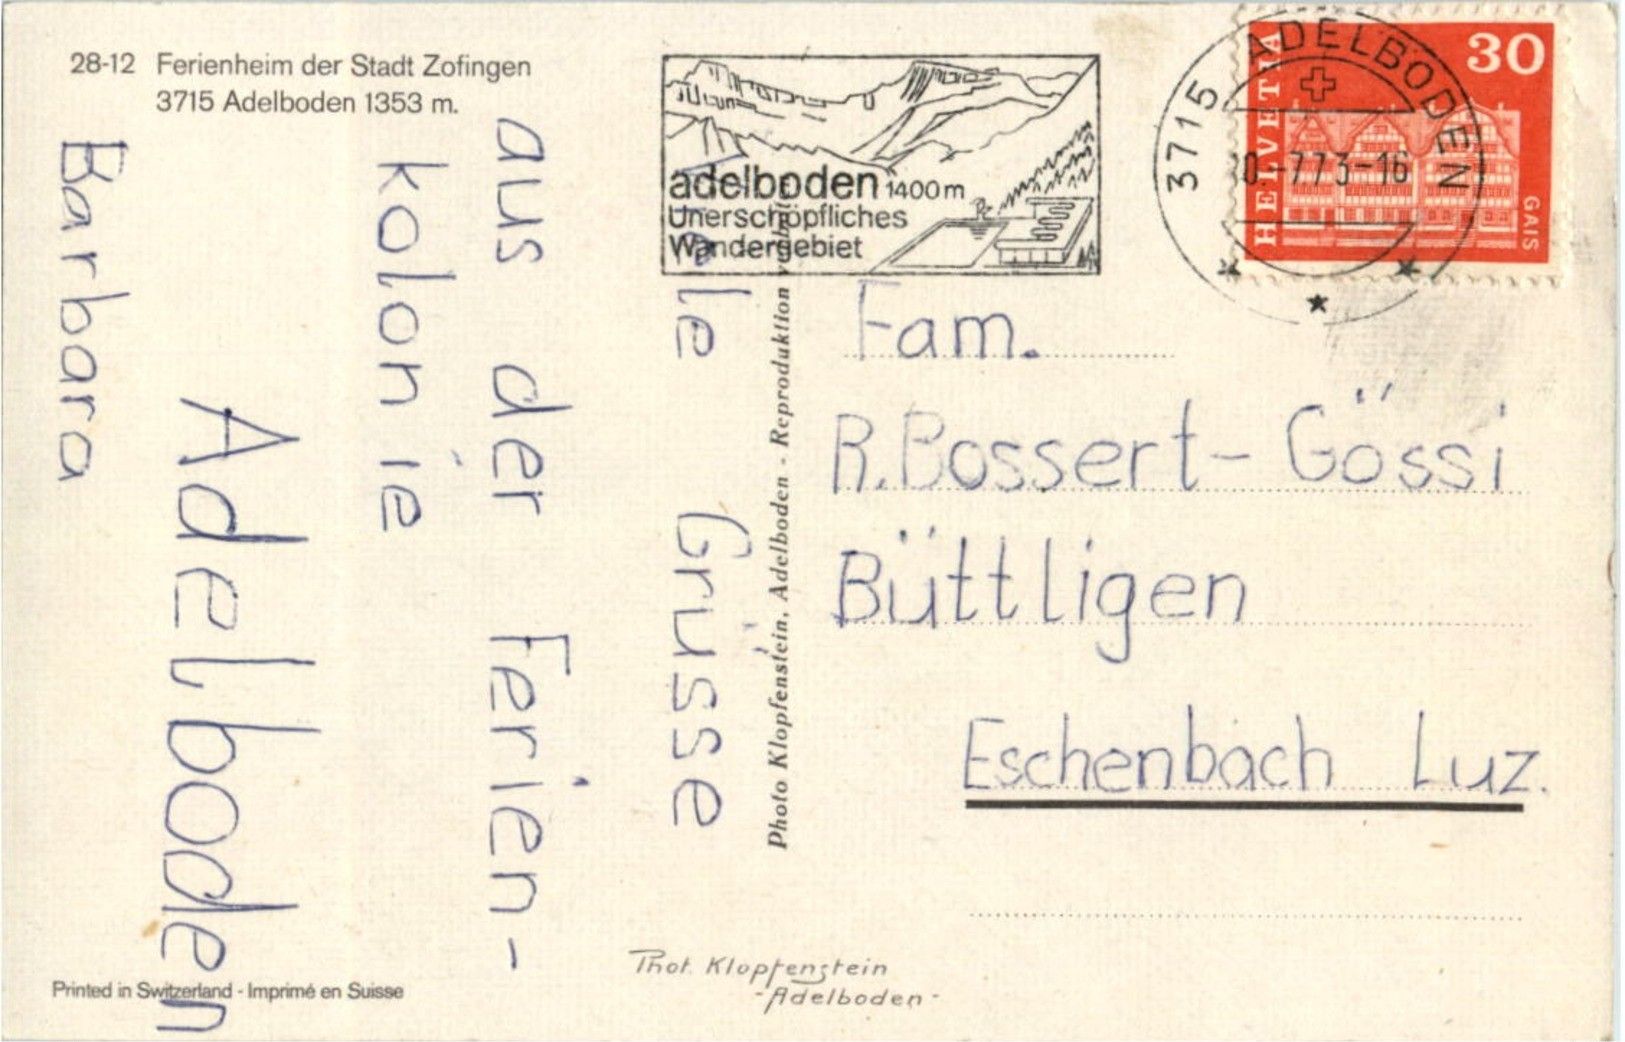 28-12 Ferienheim der Stadt Zofingen
3715 Adelboden 1353 m.
adelboden 1400 m
Unerschöpfliches
Wandergebiet
3715 ADELBODEN
-7 73-16
HELVETIA
30
GAIS
Viele Grüsse
aus der Ferien-
kolonie
Adelboden
Barbara
Photo Klopfenstein, Adelboden - Reproduktion
Fam.
R. Bossert- Gössi
Büttligen
Eschenbach Luz.
Phot. Klopfenstein
- Adelboden -
Printed in Switzerland - Imprimé en Suisse